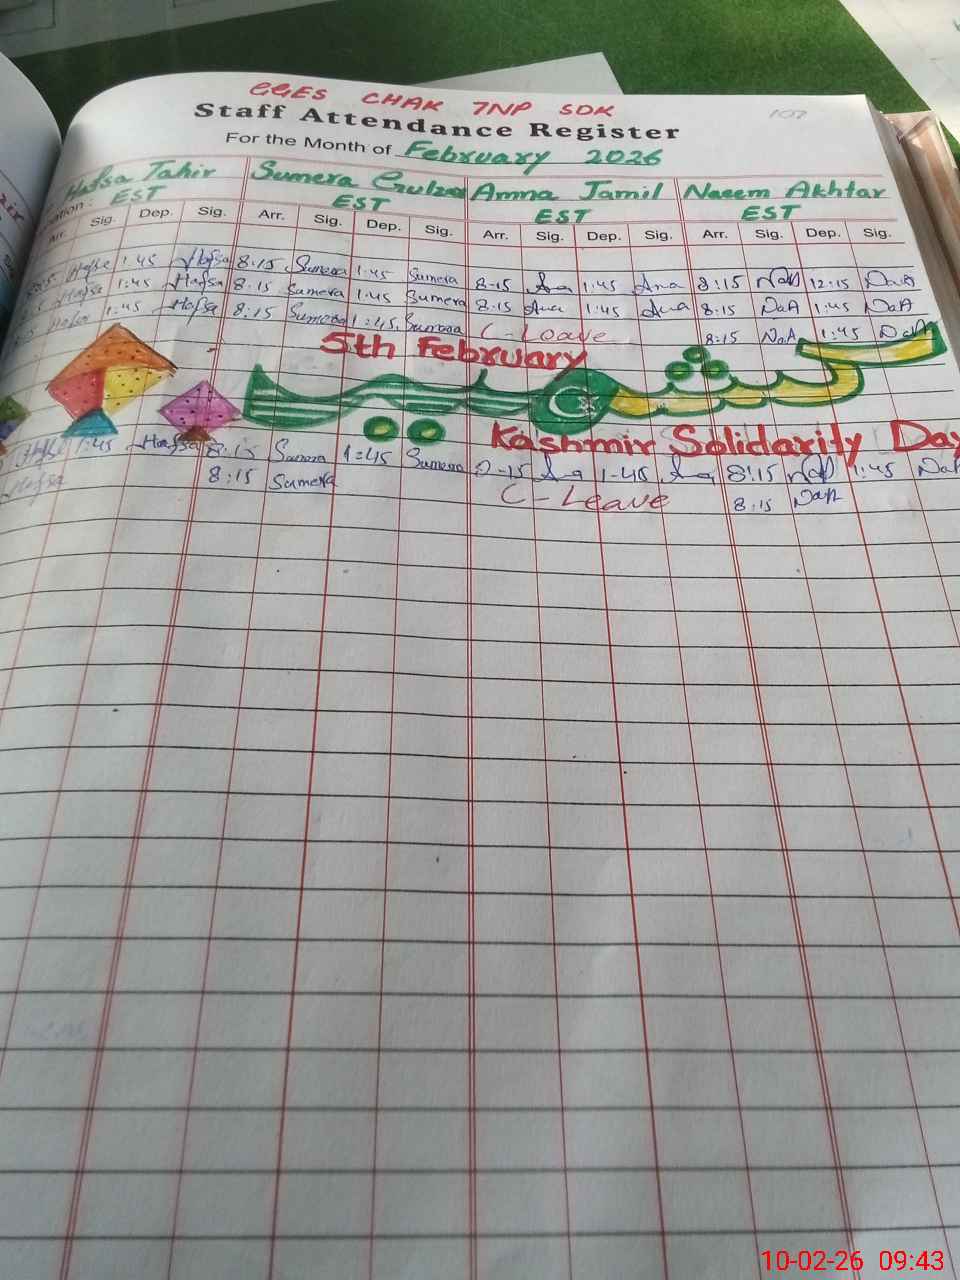 GGES CHAK 7NP SDK
107
Staff Attendance Register
For the Month of February 2026
Hafsa Tahir Sumera Gulzar Amna Jamil Naeem Akhtar
EST EST EST EST
Arr. Sig. Dep. Sig. Arr. Sig. Dep. Sig. Arr. Sig. Dep. Sig. Arr. Sig. Dep. Sig.
Hafsa 1:45 Hafsa 8:15 Sumera 1:45 Sumera 8-15 1:45 Ana 8:15 NaA 12:15 NaA
Hafsa 1:45 Hafsa 8:15 Sumera 1:45 Sumera 8:15 Ana 1:45 Ana 8:15 NaA 1:45 NaA
Hafsa 1:45 Hafsa 8:15 Sumera 1:45 Sumera C-Leave 8:15 NaA 1:45 NaA
5th February
یوم یکجہتی کشمیر
Kashmir Solidarity Day
1:45 Hafsa 8:15 Sumera 1:45 Sumera 1-45 8:15 NaA 1:45 NaA
Hafsa 8:15 Sumera C-Leave 8:15 NaA
10-02-26 09:43